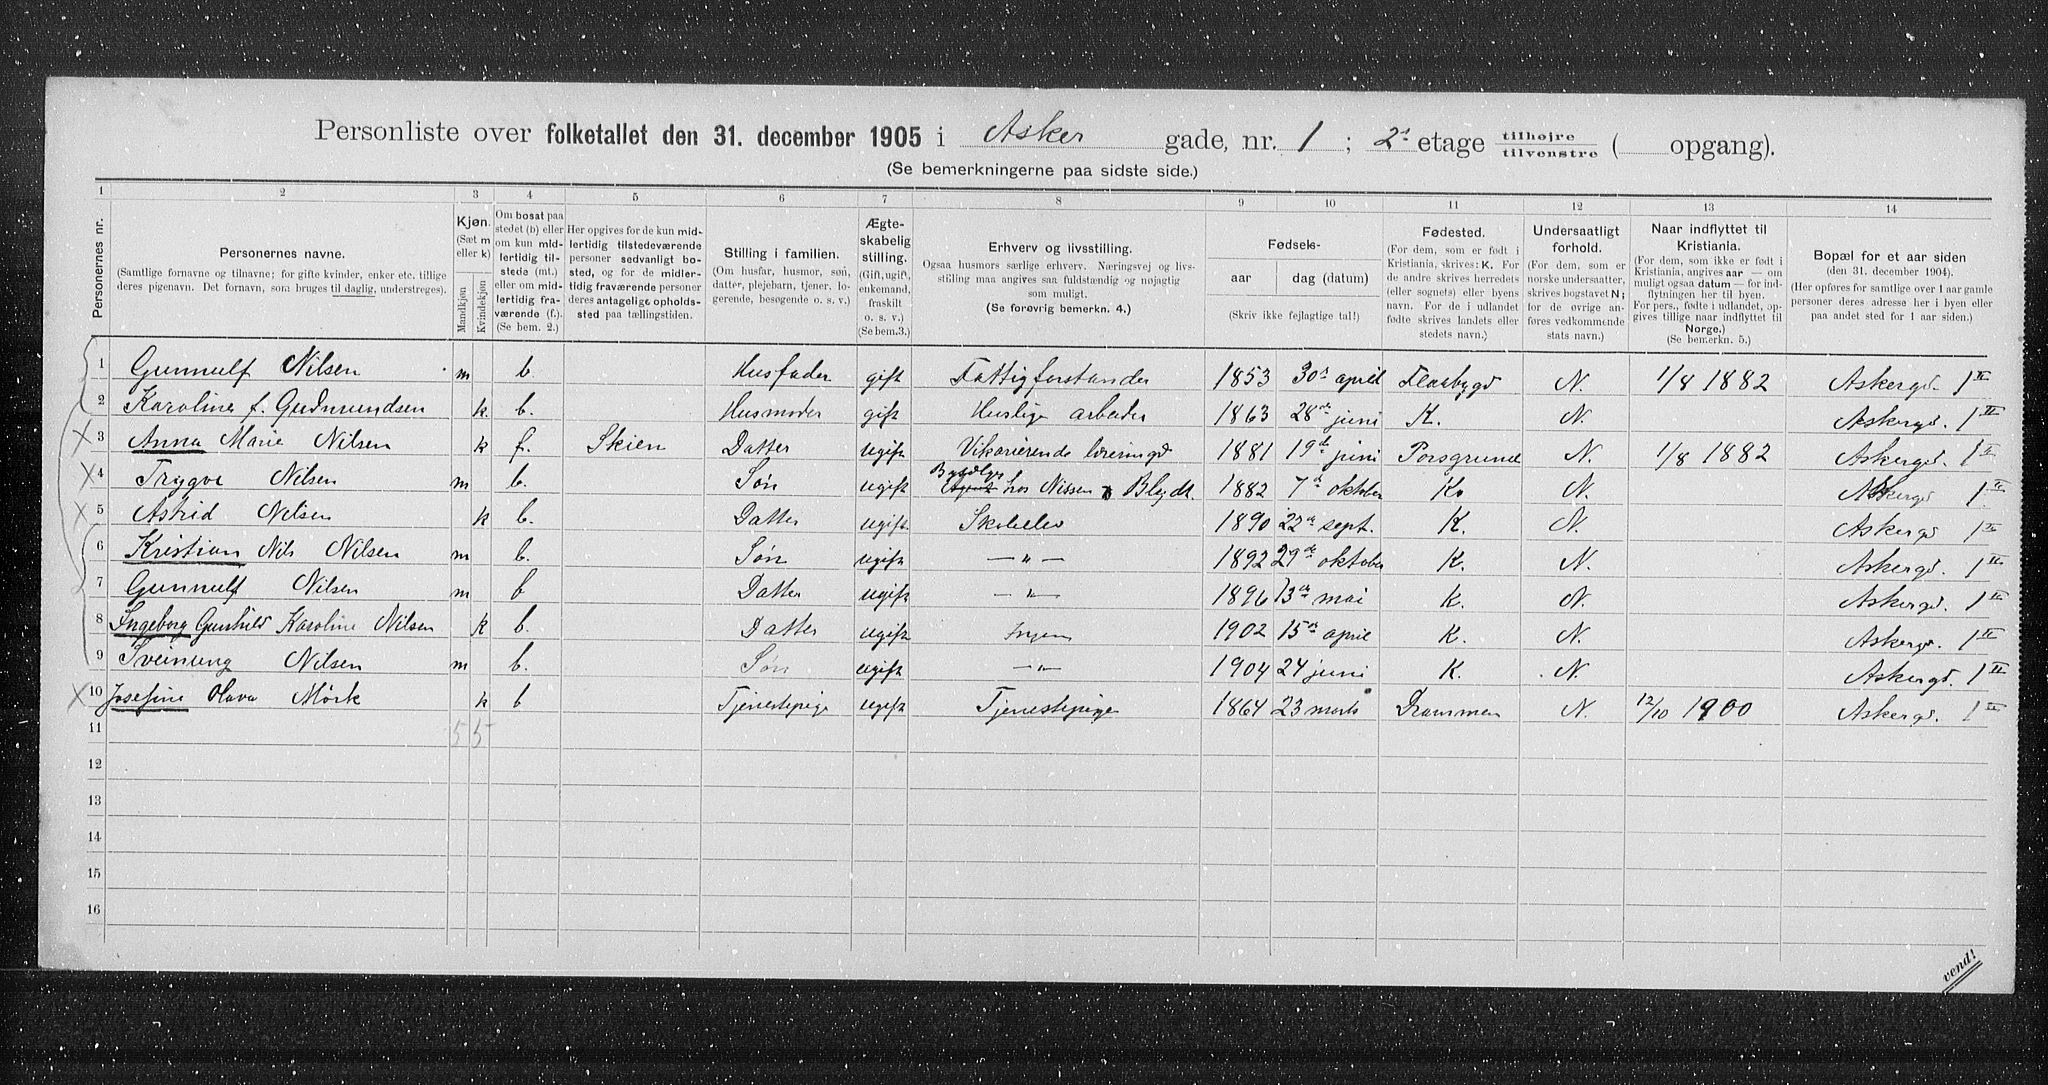 Personliste over folketallet den 31. december 1905 i Asker gade, nr. 1 ; 2s etage tilhøjre tilvenstre ( opgang).
(Se bemerkningerne paa sidste side.)
1 2 3 4 5 6 7 8 9 10 11 12 13 14
Personernes nr.
Personernes navne.
(Samtlige fornavne og tilnavne; for gifte kvinder, enker etc. tillige
deres pigenavn. Det fornavn, som bruges til daglig, understreges).
Kjøn.
(Sæt m
eller k)
Mandkjøn
Kvindekjøn
Om bosat paa
stedet (b) eller
om kun mid-
lertidig til-
stede (mt.)
eller om mid-
lertidig fra-
værende (f.).
(Se bem. 2.)
Her opgives for de kun mid-
lertidig tilstedeværende
personer sedvanlig bo-
sted, og for de midler-
tidig fraværende personer
deres antagelige opholds-
sted paa tællingstiden.
Stilling i familien.
(Om husfar, husmor, søn,
datter, plejebarn, tjener, lo-
gerende, besøgende o. s. v.)
Ægte-
skabelig
stilling.
(Gift, ugift,
enkemand,
fraskilt
o. s. v.)
(Se bem.3.)
Erhverv og livsstilling.
Ogsaa husmors særlige erhverv. Næringsvej og livs-
stilling maa angives saa fuldstændig og nøjagtig
som muligt.
(Se forøvrig bemerkn. 4.)
Fødsels-
aar dag (datum)
(Skriv ikke fejlagtige tal!)
Fødested.
(For dem, som er født i
Kristiania, skrives: K. For
de andre skrives herredets
(eller sognets) eller byens
navn. For de i udlandet
fødte skrives landets eller
stedets navn.)
Undersaatligt
forhold.
(For dem, som er
norske undersaatter,
skrives bogstavet N;
for de øvrige an-
føres vedkommende
stats navn.)
Naar indflyttet til
Kristiania.
(For dem, som ikke er født i
Kristiania, angives aar — om
muligt ogsaa datum — for ind-
flytningen her til byen.
For pers., fødte i udlandet, op-
gives tillige naar indflyttet til
Norge.)
(Se bemerkn. 5.)
Bopæl for et aar siden
(den 31. december 1904).
(Her opføres for samtlige over 1 aar gamle
personer deres adresse her i byen eller
paa andet sted for 1 aar siden.)
1 Gunnulf Nilsen m b. Husfader gift Fattigforstander 1853 30s april Flaabygd N. 1/8 1882 Askergd. 1 II
2 Karoline f. Gudmundsen k. b. Husmoder gift Huslige arbeider 1863 28de juni K. N. Askergd. 1 II
3 Anna Marie Nilsen k f. Skien Datter ugift Vikarierende lærerinde 1881 19de juni Porsgrund N. 1/8 1882 Askergd. 1 II
4 Trygve Nilsen m b. Søn ugift hos Nissen & Blydt 1882 7de oktober K. N. Askergd 1 II
5 Astrid Nilsen k b. Datter ugift Skoleelev 1890 22de sept. K. N. Askergd 1 II
6 Kristian Nils Nilsen m b. Søn ugift — „ — 1892 29de oktober K. N. Askergd. 1 II
7 Gunnulf Nilsen m b Datter ugift — „ — 1896 13de mai K. N. Askergd. 1 II
8 Ingeborg Gunhild Karoline Nilsen k b. Datter ugift Ingen 1902 15de april K. N. Askergd 1 II
9 Sveinung Nilsen m b. Søn ugift — „ — 1904 24 juni K. N. Askergd. 1 II
10 Josefine Olava Mørk k b Tjenestepige ugift Tjenestepige 1864 23 marts Drammen N. 12/10 1900 Askergd. 1 II
11 5 5
12
13
14
15
16
vend!